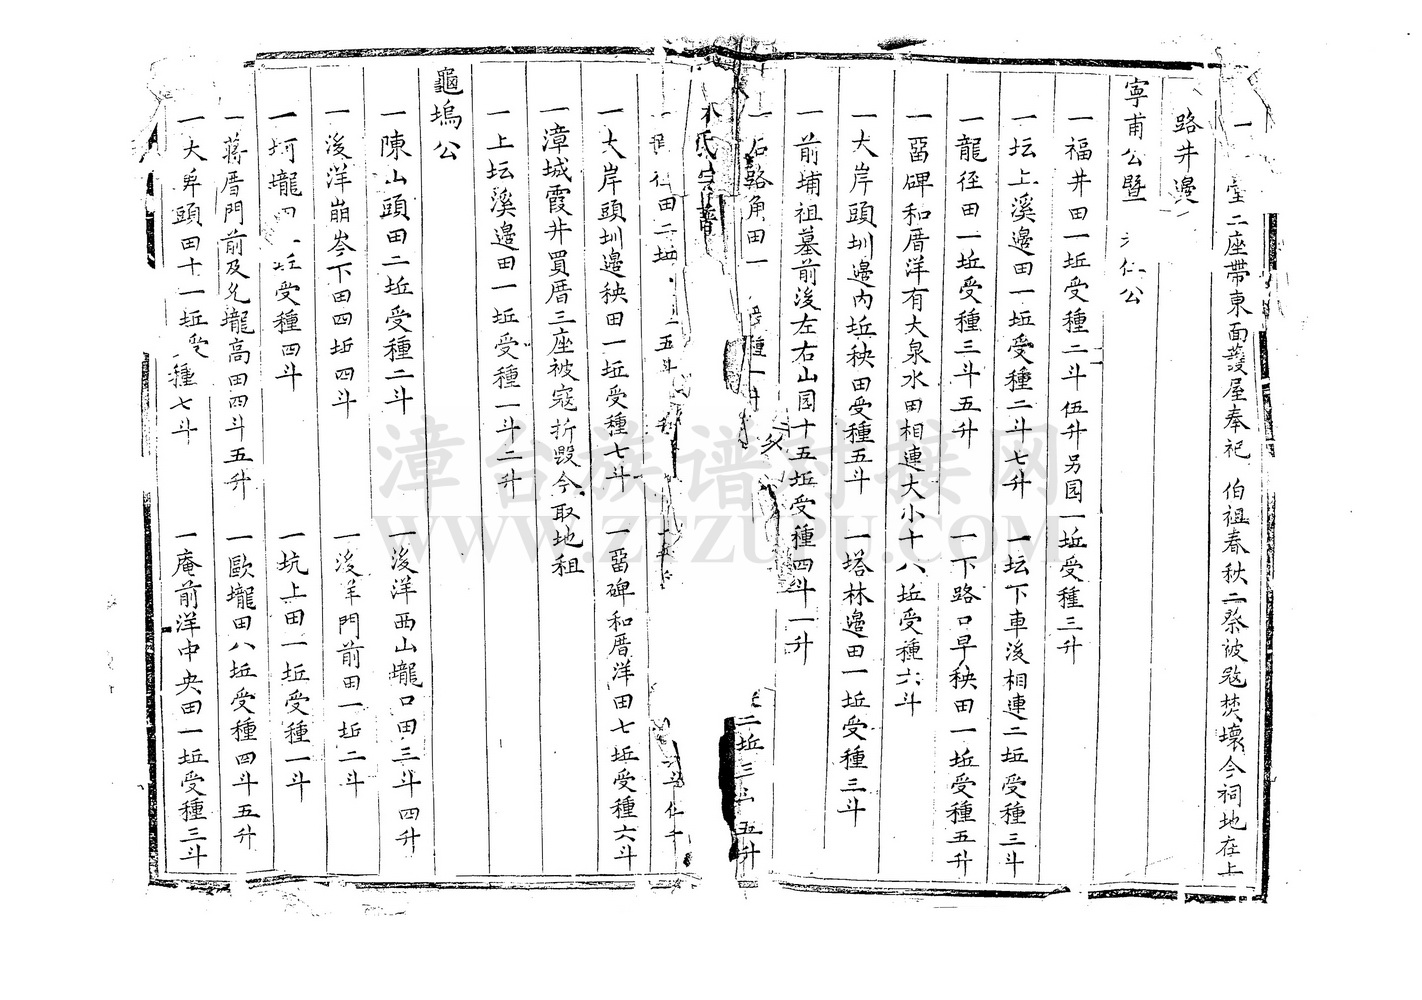 一 臺二座帶東面護屋奉祀 伯祖春秋二祭被寇焚壞今祠地在上
路井邊
寧甫公暨 仁公
一福井田一坵受種二斗伍升另園一坵受種三升
一坛上溪邊田一坵受種二斗七升 一坛下車後相連二坵受種三斗
一龍徑田一坵受種三斗五升 一下路口早秧田一坵受種五升
一畱碑和厝洋有大泉水田相連大小十八坵受種六斗
一大岸頭圳邊內坵秧田受種五斗 一塔林邊田一坵受種三斗
一前埔祖墓前後左右山园十五坵受種四斗一升
一石路角田一 種一 二坵三斗五升
氏宗譜
一 田二坵 五斗 六斗
一大岸頭圳邊秧田一坵受種七斗 一畱碑和厝洋田七坵受種六斗
一漳城霞井買厝三座被寇折毀今取地租
一上坛溪邊田一坵受種一斗二升
龜塢公
一陳山頭田二坵受種二斗 一後洋西山壠口田三斗四升
一後洋崩岑下田四坵四斗 一後洋門前田一坵二斗
一坷壠田 坵受種四斗 一坑上田一坵受種一斗
一蔣厝門前及允壠高田四斗五升 一歐壠田八坵受種四斗五升
一大 頭田十一坵受種七斗 一庵前洋中央田一坵受種三斗
漳台族谱对接网
WWW.ZTZUPU.COM